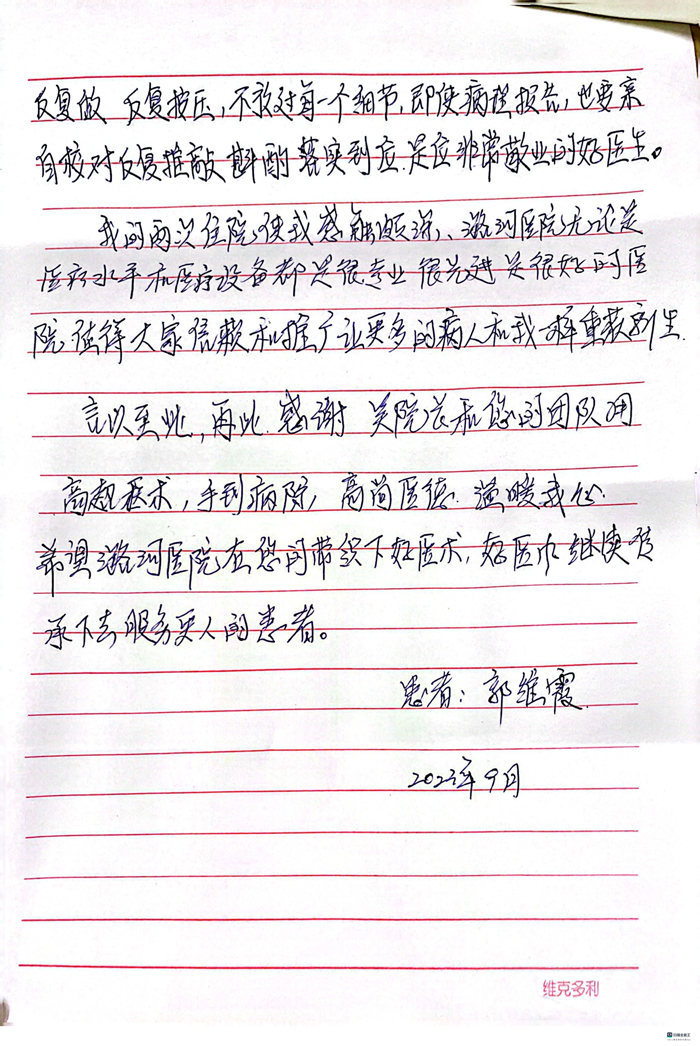 反复做 反复按压，不放过每一个细节，即使病理报告，也要亲
自校对反复推敲 斟酌 落实到位 是位非常敬业的好医生。
我的两次住院使我感触颇深、潞河医院无论是
医疗水平和医疗设备都是很专业 很先进 是很好的医
院 值得大家信赖和推广让更多的病人和我一样重获新生
言以至此，再此 感谢 吴院长和您的团队用
高超医术，手到病除，高尚医德 温暖我心
希望潞河医院在您的带领下好医术，好医 继续传
承下去 服务更人的患者。
患者：郭维霞
2023年9月
维克多利